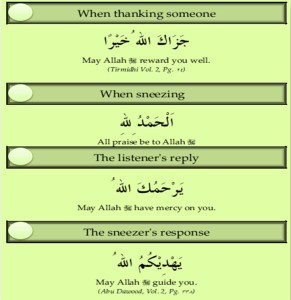 When thanking someone
جَزَاكَ اللهُ خَيْرًا
May Allah ﷻ reward you well.
(Tirmidhi Vol. 2, Pg. ٢٤)
When sneezing
اَلْحَمْدُ لِلهِ
All praise be to Allah ﷻ
The listener's reply
يَرْحَمُكَ اللهُ
May Allah ﷻ have mercy on you.
The sneezer's response
يَهْدِيْكُمُ اللهُ
May Allah ﷻ guide you.
(Abu Dawood, Vol. 2, Pg.